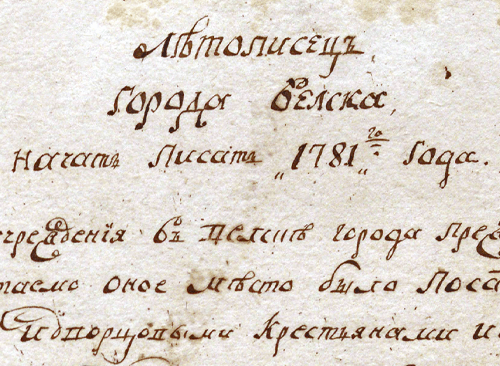 Лѣтописецъ
города Велска,
начатъ писать „1781„го года.
учреждения въ Велскѣ города пре
таемо оное мѣсто было Поса
и дворцовыми крестьянами и